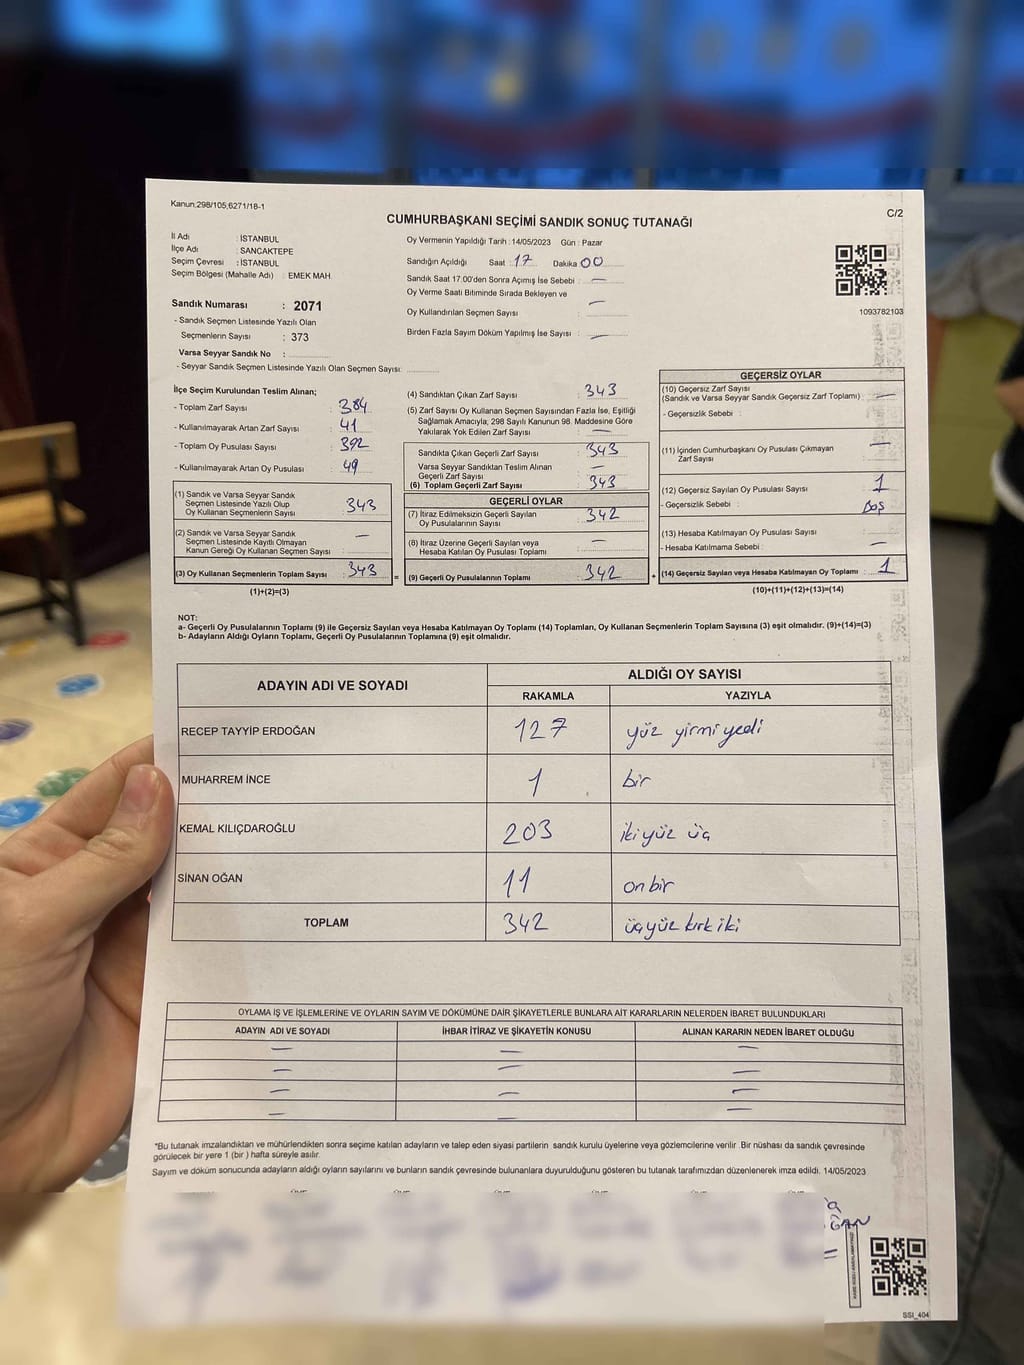 Kanun,298/105,6271/18-1
C/2
CUMHURBAŞKANI SEÇİMİ SANDIK SONUÇ TUTANAĞI
İl Adı : İSTANBUL
İlçe Adı : SANCAKTEPE
Seçim Çevresi : İSTANBUL
Seçim Bölgesi (Mahalle Adı) : EMEK MAH.
Sandık Numarası : 2071
- Sandık Seçmen Listesinde Yazılı Olan
Seçmenlerin Sayısı : 373
Varsa Seyyar Sandık No :
- Seyyar Sandık Seçmen Listesinde Yazılı Olan Seçmen Sayısı:
Oy Vermenin Yapıldığı Tarih : 14/05/2023 Gün : Pazar
Sandığın Açıldığı Saat : 17 Dakika 00
Sandık Saat 17:00'den Sonra Açımış İse Sebebi : —
Oy Verme Saati Bitiminde Sırada Bekleyen ve
Oy Kullandırılan Seçmen Sayısı : —
Birden Fazla Sayım Döküm Yapılmış İse Sayısı : —
1093782103
İlçe Seçim Kurulundan Teslim Alınan;
- Toplam Zarf Sayısı : 384
- Kullanılmayarak Artan Zarf Sayısı : 41
- Toplam Oy Pusulası Sayısı : 392
- Kullanılmayarak Artan Oy Pusulası : 49
(1) Sandık ve Varsa Seyyar Sandık
Seçmen Listesinde Yazılı Olup
Oy Kullanan Seçmenlerin Sayısı : 343
(2) Sandık ve Varsa Seyyar Sandık
Seçmen Listesinde Kayıtlı Olmayan
Kanun Gereği Oy Kullanan Seçmen Sayısı : —
(3) Oy Kullanan Seçmenlerin Toplam Sayısı : 343
(1)+(2)=(3)
(4) Sandıktan Çıkan Zarf Sayısı : 343
(5) Zarf Sayısı Oy Kullanan Seçmen Sayısından Fazla İse, Eşitliği
Sağlamak Amacıyla; 298 Sayılı Kanunun 98. Maddesine Göre
Yakılarak Yok Edilen Zarf Sayısı : —
Sandıkta Çıkan Geçerli Zarf Sayısı : 343
Varsa Seyyar Sandıktan Teslim Alınan
Geçerli Zarf Sayısı : —
(6) Toplam Geçerli Zarf Sayısı : 343
GEÇERLİ OYLAR
(7) İtiraz Edilmeksizin Geçerli Sayılan
Oy Pusulalarının Sayısı : 342
(8) İtiraz Üzerine Geçerli Sayılan veya
Hesaba Katılan Oy Pusulası Toplamı : —
= (9) Geçerli Oy Pusulalarının Toplamı : 342
GEÇERSİZ OYLAR
(10) Geçersiz Zarf Sayısı
(Sandık ve Varsa Seyyar Sandık Geçersiz Zarf Toplamı) : —
- Geçersizlik Sebebi :
(11) İçinden Cumhurbaşkanı Oy Pusulası Çıkmayan
Zarf Sayısı : —
(12) Geçersiz Sayılan Oy Pusulası Sayısı : 1
- Geçersizlik Sebebi : Boş
(13) Hesaba Katılmayan Oy Pusulası Sayısı :
- Hesaba Katılmama Sebebi : —
+ (14) Geçersiz Sayılan veya Hesaba Katılmayan Oy Toplamı : 1
(10)+(11)+(12)+(13)=(14)
NOT:
a- Geçerli Oy Pusulalarının Toplamı (9) ile Geçersiz Sayılan veya Hesaba Katılmayan Oy Toplamı (14) Toplamları, Oy Kullanan Seçmenlerin Toplam Sayısına (3) eşit olmalıdır. (9)+(14)=(3)
b- Adayların Aldığı Oyların Toplamı, Geçerli Oy Pusulalarının Toplamına (9) eşit olmalıdır.
ADAYIN ADI VE SOYADI
ALDIĞI OY SAYISI
RAKAMLA YAZIYLA
RECEP TAYYİP ERDOĞAN 127 yüz yirmi yedi
MUHARREM İNCE 1 bir
KEMAL KILIÇDAROĞLU 203 iki yüz üç
SİNAN OĞAN 11 on bir
TOPLAM 342 üç yüz kırk iki
OYLAMA İŞ VE İŞLEMLERİNE VE OYLARIN SAYIM VE DÖKÜMÜNE DAİR ŞİKAYETLERLE BUNLARA AİT KARARLARIN NELERDEN İBARET BULUNDUKLARI
ADAYIN ADI VE SOYADI İHBAR İTİRAZ VE ŞİKAYETİN KONUSU ALINAN KARARIN NEDEN İBARET OLDUĞU
— — —
— — —
— — —
— — —
*Bu tutanak imzalandıktan ve mühürlendikten sonra seçime katılan adayların ve talep eden siyasi partilerin sandık kurulu üyelerine veya gözlemcilerine verilir. Bir nüshası da sandık çevresinde
görülecek bir yere 1 (bir) hafta süreyle asılır.
Sayım ve döküm sonucunda adayların aldığı oyların sayılarını ve bunların sandık çevresinde bulunanlara duyurulduğunu gösteren bu tutanak tarafımızdan düzenlenerek imza edildi. 14/05/2023
SSI_404